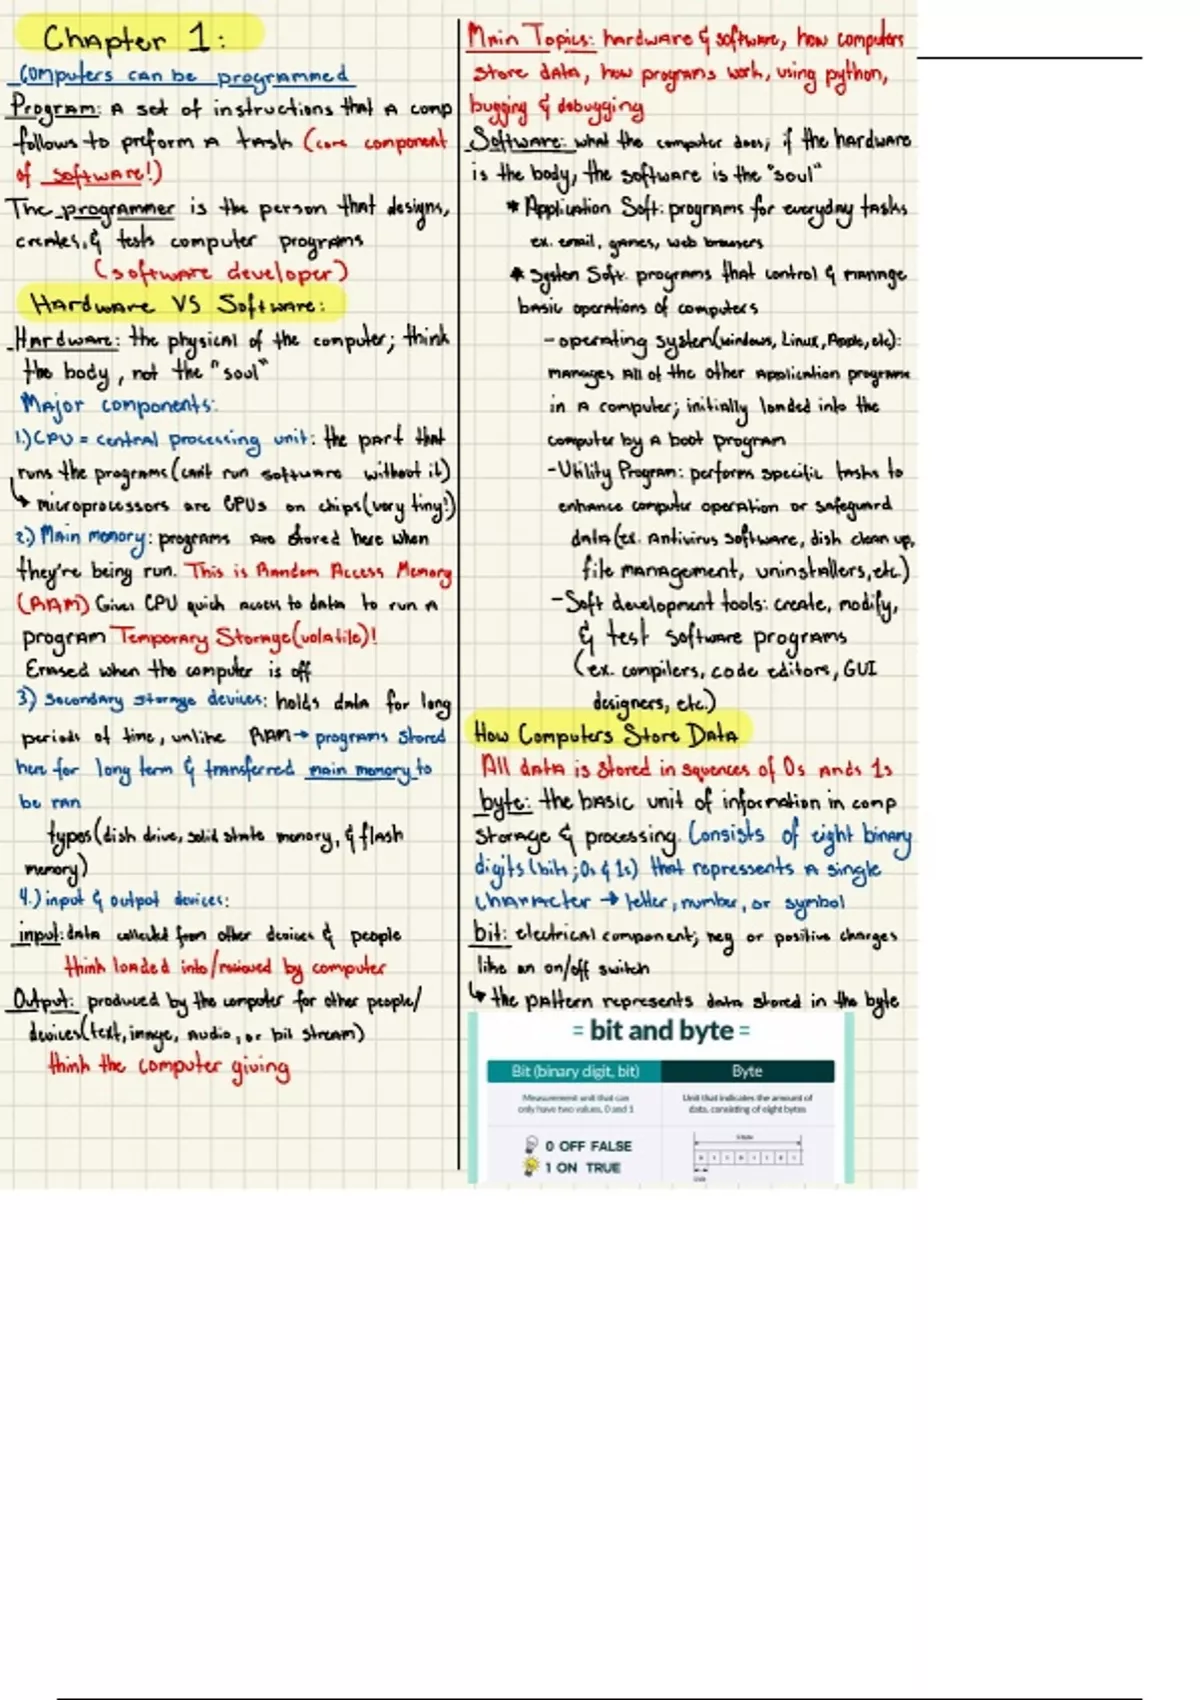 Chapter 1:
computers can be programmed
Program: A set of instructions that a comp
follows to preform a task (core component
of software!)
The programmer is the person that designs,
creates, & tests computer programs
(software developer)
Hardware VS Software:
Hardware: the physical of the computer; think
the body, not the "soul"
Major components:
1.) CPU = central processing unit: the part that
runs the programs (can't run software without it)
↳ microprocessors are CPUs on chips (very tiny!)
2.) Main memory: programs are stored here when
they're being run. This is Random Access Memory
(RAM) Gives CPU quick access to data to run a
program Temporary Storage (volatile)!
Erased when the computer is off
3) Secondary storage devices: holds data for long
periods of time, unlike RAM → programs stored
here for long term & transferred main memory to
be ran
types (disk drive, solid state memory, & flash
memory)
4.) input & output devices:
input: data collected from other devices & people
think loaded into/recieved by computer
Output: produced by the computer for other people/
devices (text, image, audio, or bit stream)
think the computer giving
Main Topics: hardware & software, how computers
store data, how programs work, using python,
bugging & debugging
Software: what the computer does; if the hardware
is the body, the software is the "soul"
* Application Soft: programs for everyday tasks
ex. email, games, web browsers
* System Soft: programs that control & manage
basic operations of computers
- operating system (windows, Linux, Apple, etc):
manages all of the other application programs
in a computer; initially loaded into the
computer by a boot program
- Utility Program: performs specific tasks to
enhance computer operation or safeguard
data (ex. Antivirus software, dish clean up,
file management, uninstallers, etc.)
- Soft development tools: create, modify,
& test software programs
(ex. compilers, code editors, GUI
designers, etc.)
How Computers Store Data
All data is stored in squences of 0s ands 1s
byte: the basic unit of information in comp
storage & processing. Consists of eight binary
digits (bits; 0s & 1s) that repressents a single
character → letter, number, or symbol
bit: electrical component; neg or positive charges
like an on/off switch
↳ the pattern represents data stored in the byte
= bit and byte =
Bit (binary digit, bit) Byte
Measurement unit that can
only have two values, 0 and 1
Unit that indicates the amount of
data, consisting of eight bytes
0 OFF FALSE
1 ON TRUE